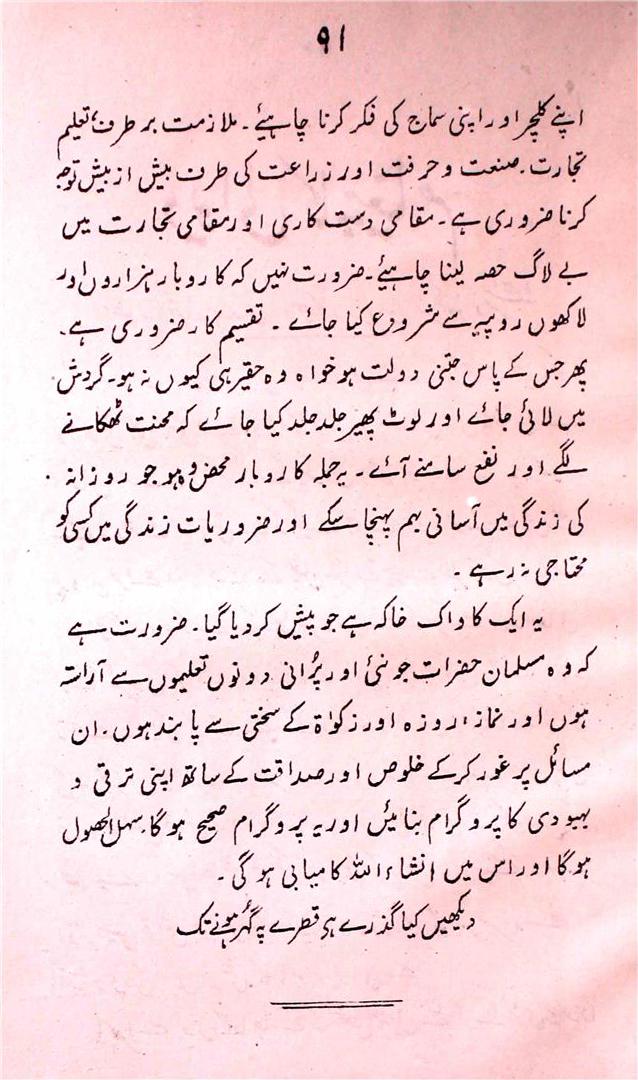 ۹۱
اپنے کلچر اور اپنی سماج کی فکر کرنا چاہیئے۔ ملازمت برطرف، تعلیم
تجارت۔ صنعت و حرفت اور زراعت کی طرف بیش از بیش توجہ
کرنا ضروری ہے۔ مقامی دست کاری اور مقامی تجارت میں
بے لاگ حصہ لینا چاہیئے۔ ضرورت نہیں کہ کاروبار ہزاروں اور
لاکھوں روپیہ سے شروع کیا جائے۔ تقسیم کار ضروری ہے۔
پھر جس کے پاس جتنی دولت ہو خواہ وہ حقیر ہی کیوں نہ ہو۔ گردش
میں لائی جائے اور لوٹ پھیر جلد جلد کیا جائے کہ محنت ٹھکانے
لگے اور نفع سامنے آئے۔ یہ جملہ کاروبار محض وہ ہو جو روزانہ
کی زندگی میں آسانی بہم پہنچا سکے اور ضروریات زندگی میں کسی کو
محتاجی نہ رہے۔
یہ ایک کاواک خاکہ ہے جو پیش کر دیا گیا۔ ضرورت ہے
کہ وہ مسلمان حضرات جو نئی اور پُرانی دونوں تعلیموں سے آراستہ
ہوں اور نماز، روزہ اور زکوٰۃ کے سختی سے پابند ہوں۔ ان
مسائل پر غور کرکے خلوص اور صداقت کے ساتھ اپنی ترقی و
بہبودی کا پروگرام بنائیں اور یہ پروگرام صحیح ہوگا۔ سہل الحصول
ہوگا اور اس میں انشاء اللہ کامیابی ہوگی۔
دیکھیں کیا گذرے ہی قطرے پہ گہر ہونے تک